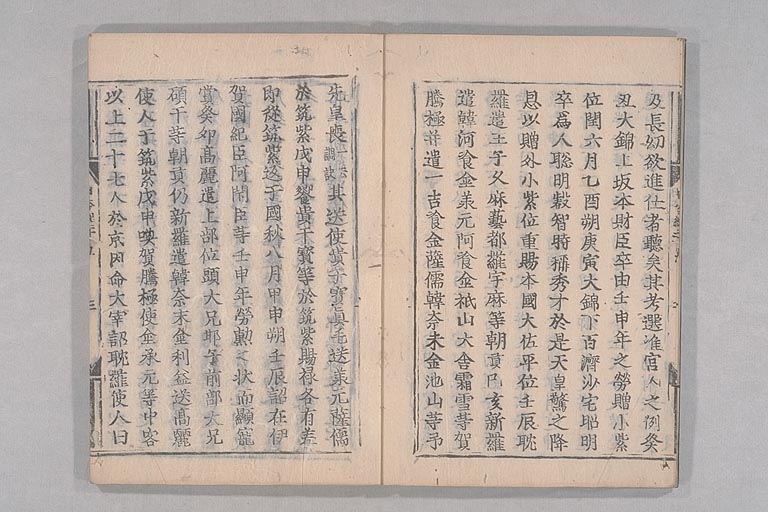 及長幼欲進仕者聽矣其考選准官人之例癸
丑大錦上坂本財臣卒由壬申年之勞贈小紫
位閏六月乙酉朔庚寅大錦下百濟沙宅昭明
卒爲人聰明叡智時稱秀才於是天皇驚之降
恩以贈外小紫位重賜本國大佐平位壬辰耽
羅遣王子久麻藝都羅宇麻等朝貢己亥新羅
遣韓阿飡金承元阿飡金祇山大舍霜雪等賀
騰極并遣一吉飡金薩儒韓奈末金池山等弔
先皇喪其送使貴干寶眞毛送承元薩儒
於筑紫戊申饗貴干寶等於筑紫賜祿各有差
即從筑紫返于國秋八月甲申朔壬辰詔在伊
賀國紀臣阿閇臣等壬申年勞勳之狀而顯寵
賞癸卯高麗遣上部位頭大兄邯子前部大兄
碩干等朝貢仍新羅遣韓奈末金利益送高麗
使人于筑紫戊申喚賀騰極使金承元等中客
以上二十七人於京因命大宰詔耽羅使人曰